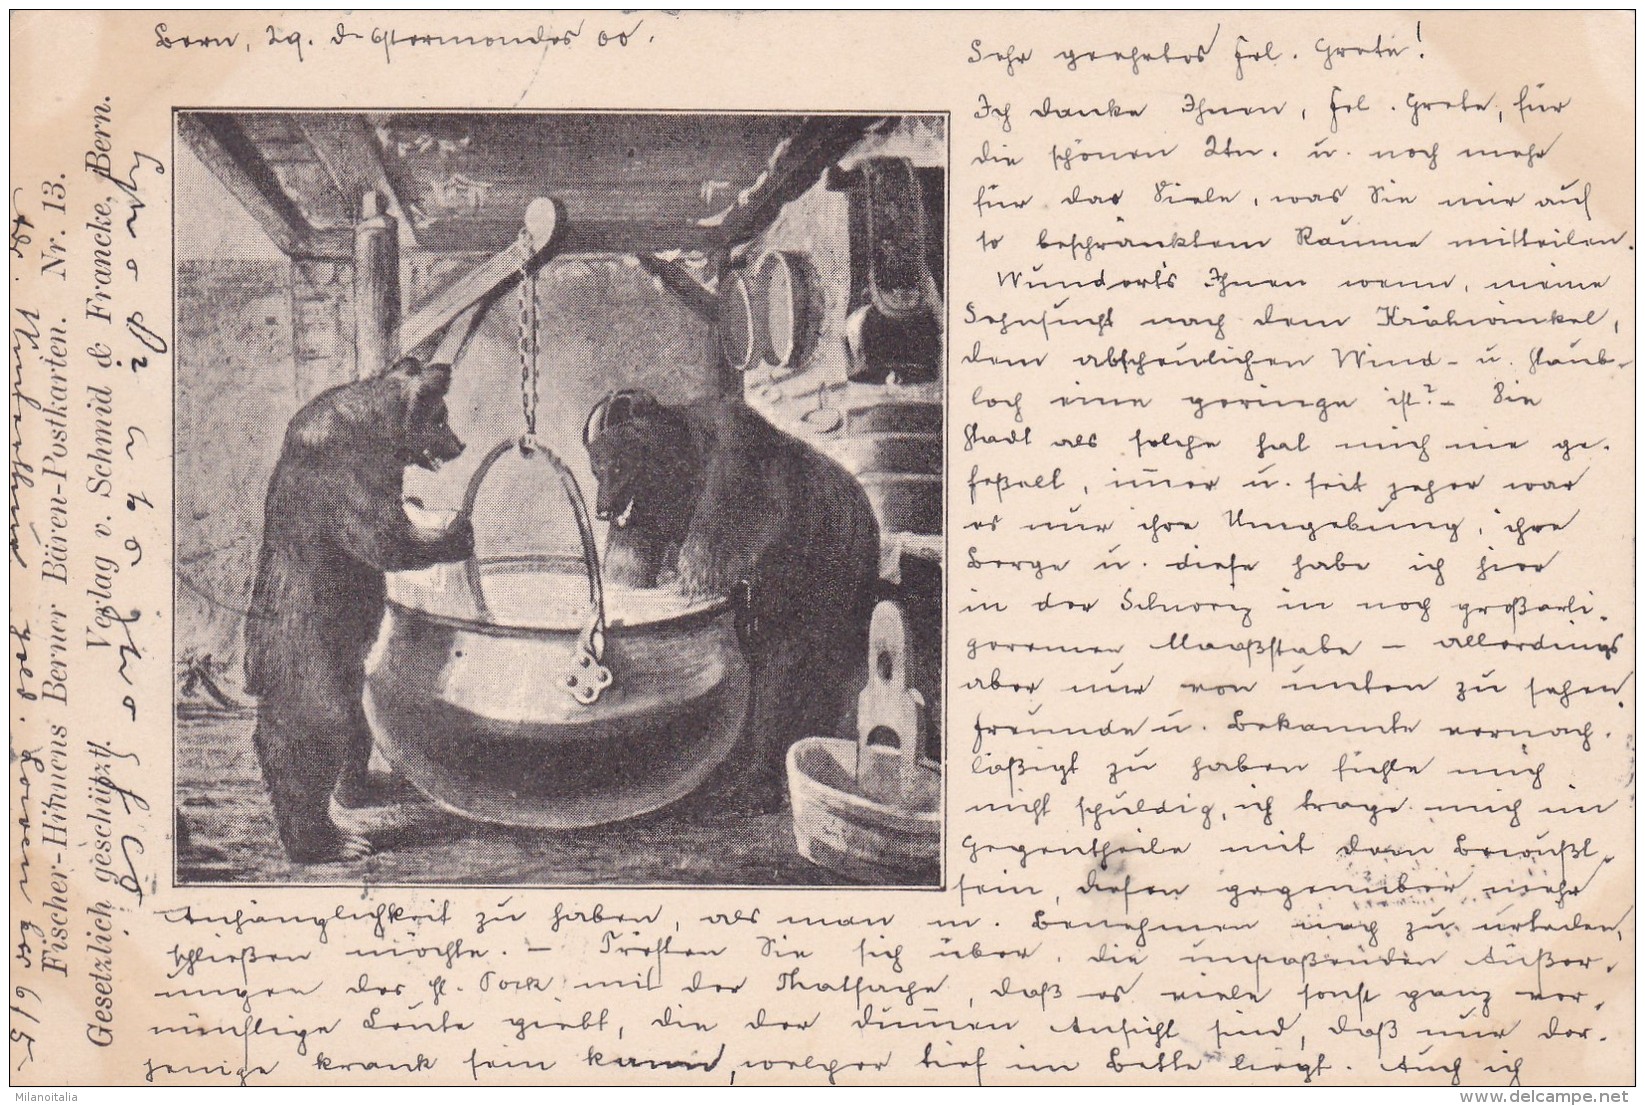 Bern, 29. d. Ostermondes 00.
Sehr geehrtes Frl. Grete!
Ich danke Ihnen, Frl. Grete, für
die schönen Ktn. u. noch mehr
für das Viele, was Sie mir auf
so beschränktem Raume mitteilen.
Wundert's Ihnen wenn, meine
Sehnsucht nach dem Krähwinkel,
dem abscheulichen Wind- u. Staub-
loch eine geringe ist? – Die
Stadt als solche hat mich nie ge-
feßelt, immer u. seit jeher war
es nur ihre Umgebung, ihre
Berge u. diese habe ich hier
in der Schweiz in noch großarti-
gerem Maaßstabe – allerdings
aber nur von unten zu sehen.
Freunde u. Bekannte vernach-
läßigt zu haben fühle mich
nicht schuldig, ich trage mich im
Gegentheile mit dem Bewußt-
sein, diesen gegenüber mehr
Anhänglichkeit zu haben, als man m. Benehmen nach zu urteilen,
schließen möchte. – Trösten Sie sich über die unpaßenden Äußer-
ungen des H. mit der Thatsache, daß es viele sonst ganz ver-
nünftige Leute giebt, die der dummen Ansicht sind, daß nur der-
jenige krank sein kann, welcher tief im Bette liegt. Auch ich
Gesetzlich geschützt. Verlag v. Schmid & Francke, Bern.
Fischer-Hinnens Berner Bären-Postkarten. Nr. 13.
6/5
Milanoitalia
delcampe.net